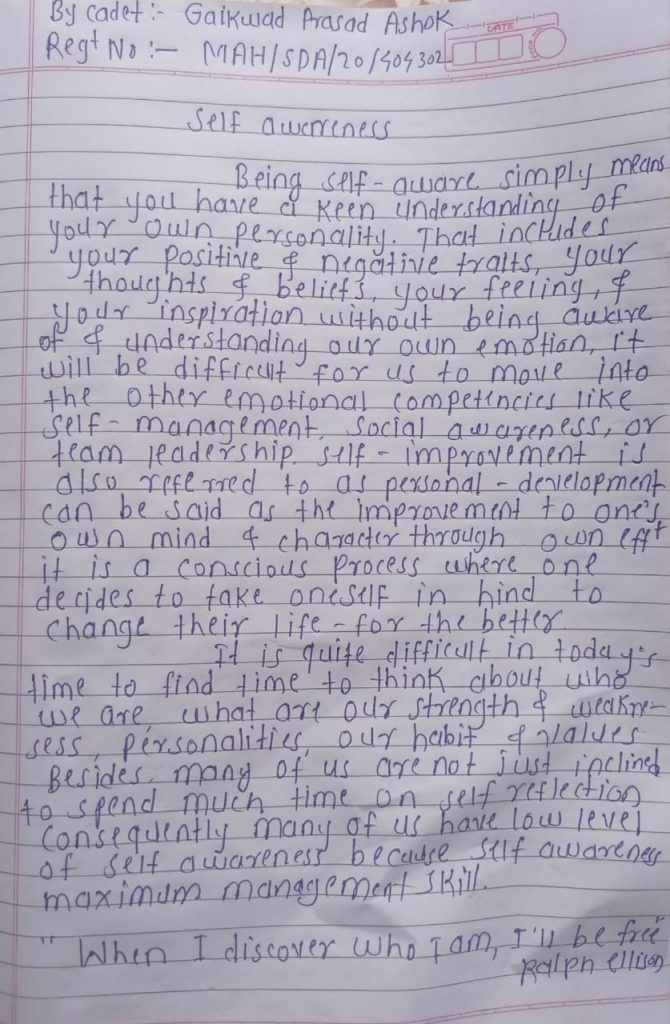 By cadet :- Gaikwad Prasad Ashok
Regt No :- MAH/SDA/20/404302
DATE
Self awerreness
Being self-aware simply means
that you have a keen understanding of
your own personality. That includes
your positive & negative traits, your
thoughts & beliefs, your feeling, &
your inspiration without being aware
of & understanding our own emotion, it
will be difficult for us to move into
the other emotional competencies like
self-management, social awareness, or
team leadership. self-improvement is
also referred to as personal-development
can be said as the improvement to one's
own mind & character through own efft
it is a conscious process where one
decides to take oneself in hind to
change their life - for the better.
It is quite difficult in today's
time to find time to think about who
we are, what are our strength & weakne-
sess, personalities, our habit & values
Besides. many of us are not just inclined
to spend much time on self reflection
Consequently many of us have low level
of self awareness because self awareness
maximum management skill.
" When I discover who I am, I'll be free "
Ralph ellison